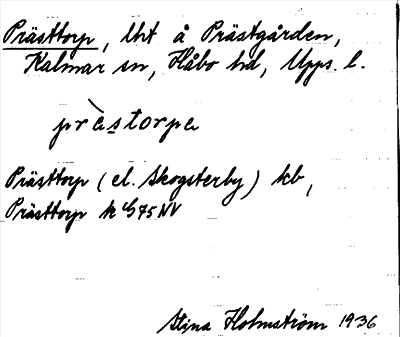 Prästtorp, lht å Prästgården,
Kalmar sn, Håbo hd, Upps. l.
prὰstorpa
Prästtorp (el. Skogsterby) kb,
Prästtorp k G75NV
Stina Holmström 1936